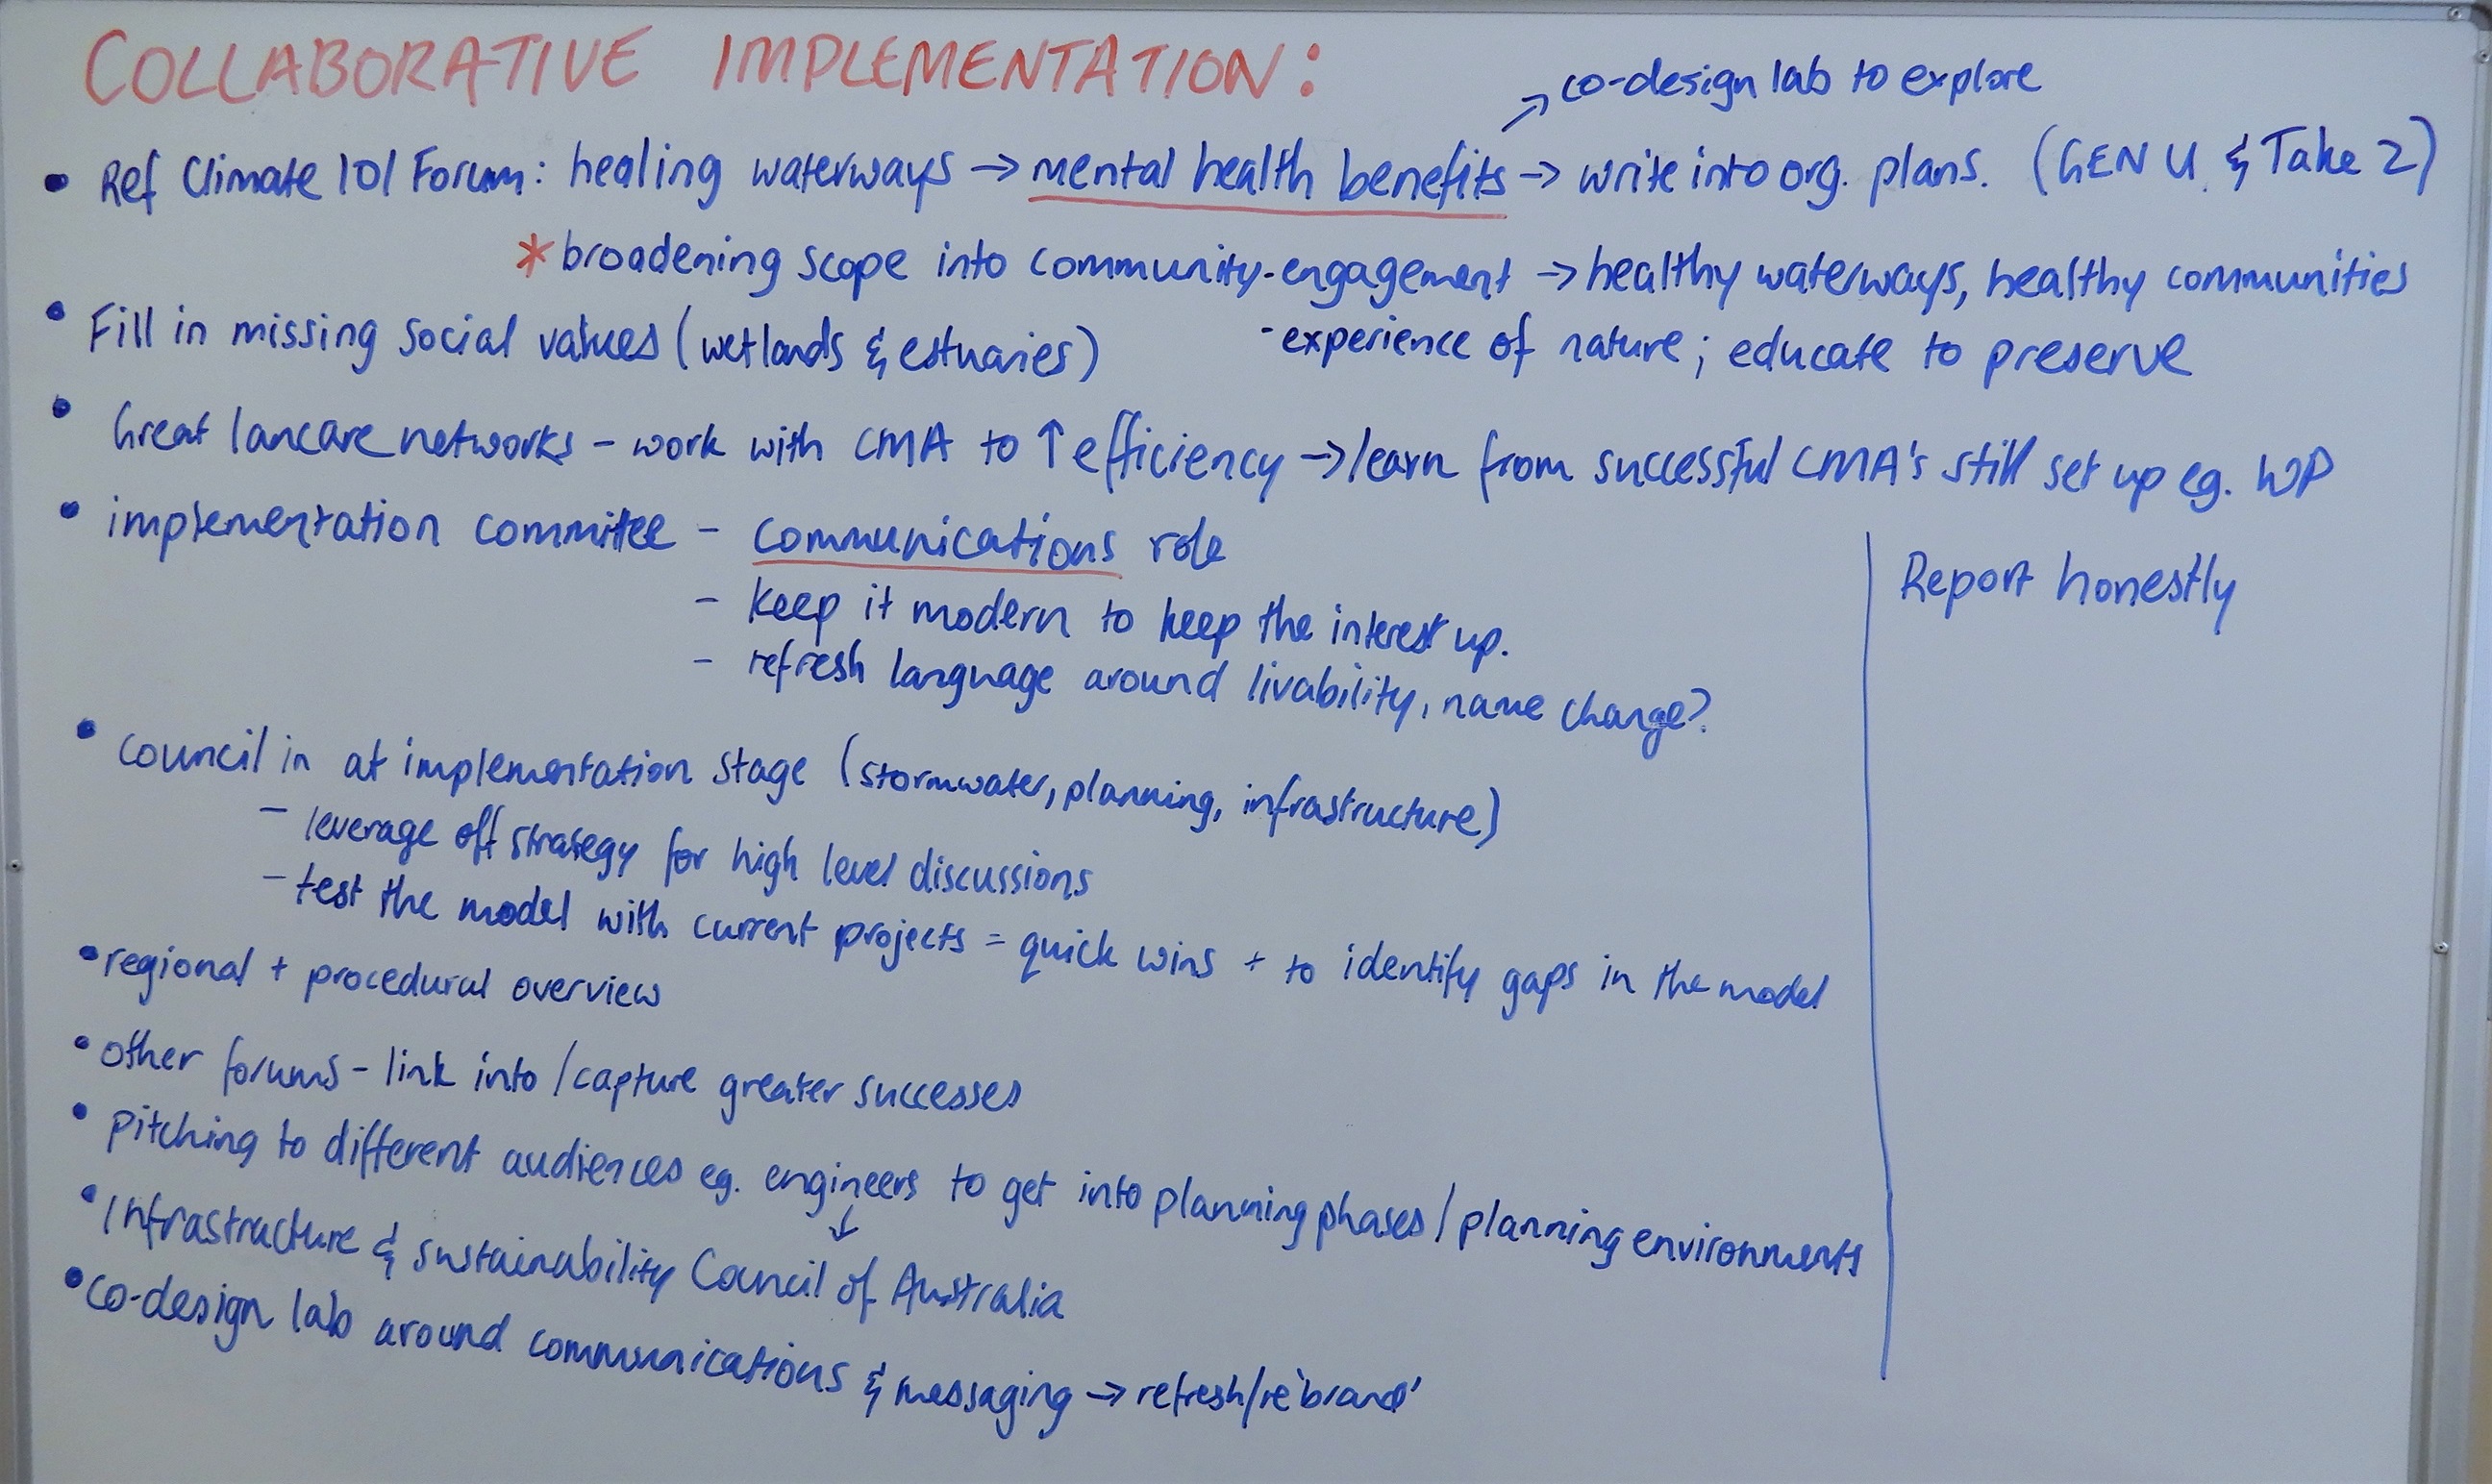 COLLABORATIVE IMPLEMENTATION:
↗ co-design lab to explore
• Ref Climate 101 Forum: healing waterways → mental health benefits → write into org. plans. (GEN U. & Take 2)
* broadening scope into community-engagement → healthy waterways, healthy communities
- experience of nature; educate to preserve
• Fill in missing social values (wetlands & estuaries)
• Great lancare networks - work with CMA to ↑ efficiency → learn from successful CMA's still set up eg. WP
• implementation committee - communications role
- keep it modern to keep the interest up.
- refresh language around livability, name change?
• council in at implementation stage (stormwater, planning, infrastructure)
- leverage off strategy for high level discussions
- test the model with current projects = quick wins + to identify gaps in the model
• regional + procedural overview
• other forums - link into / capture greater successes
• pitching to different audiences eg. engineers to get into planning phases / planning environments
↓
• Infrastructure & sustainability Council of Australia
• co-design lab around communications & messaging → refresh/re'brand'
Report honestly